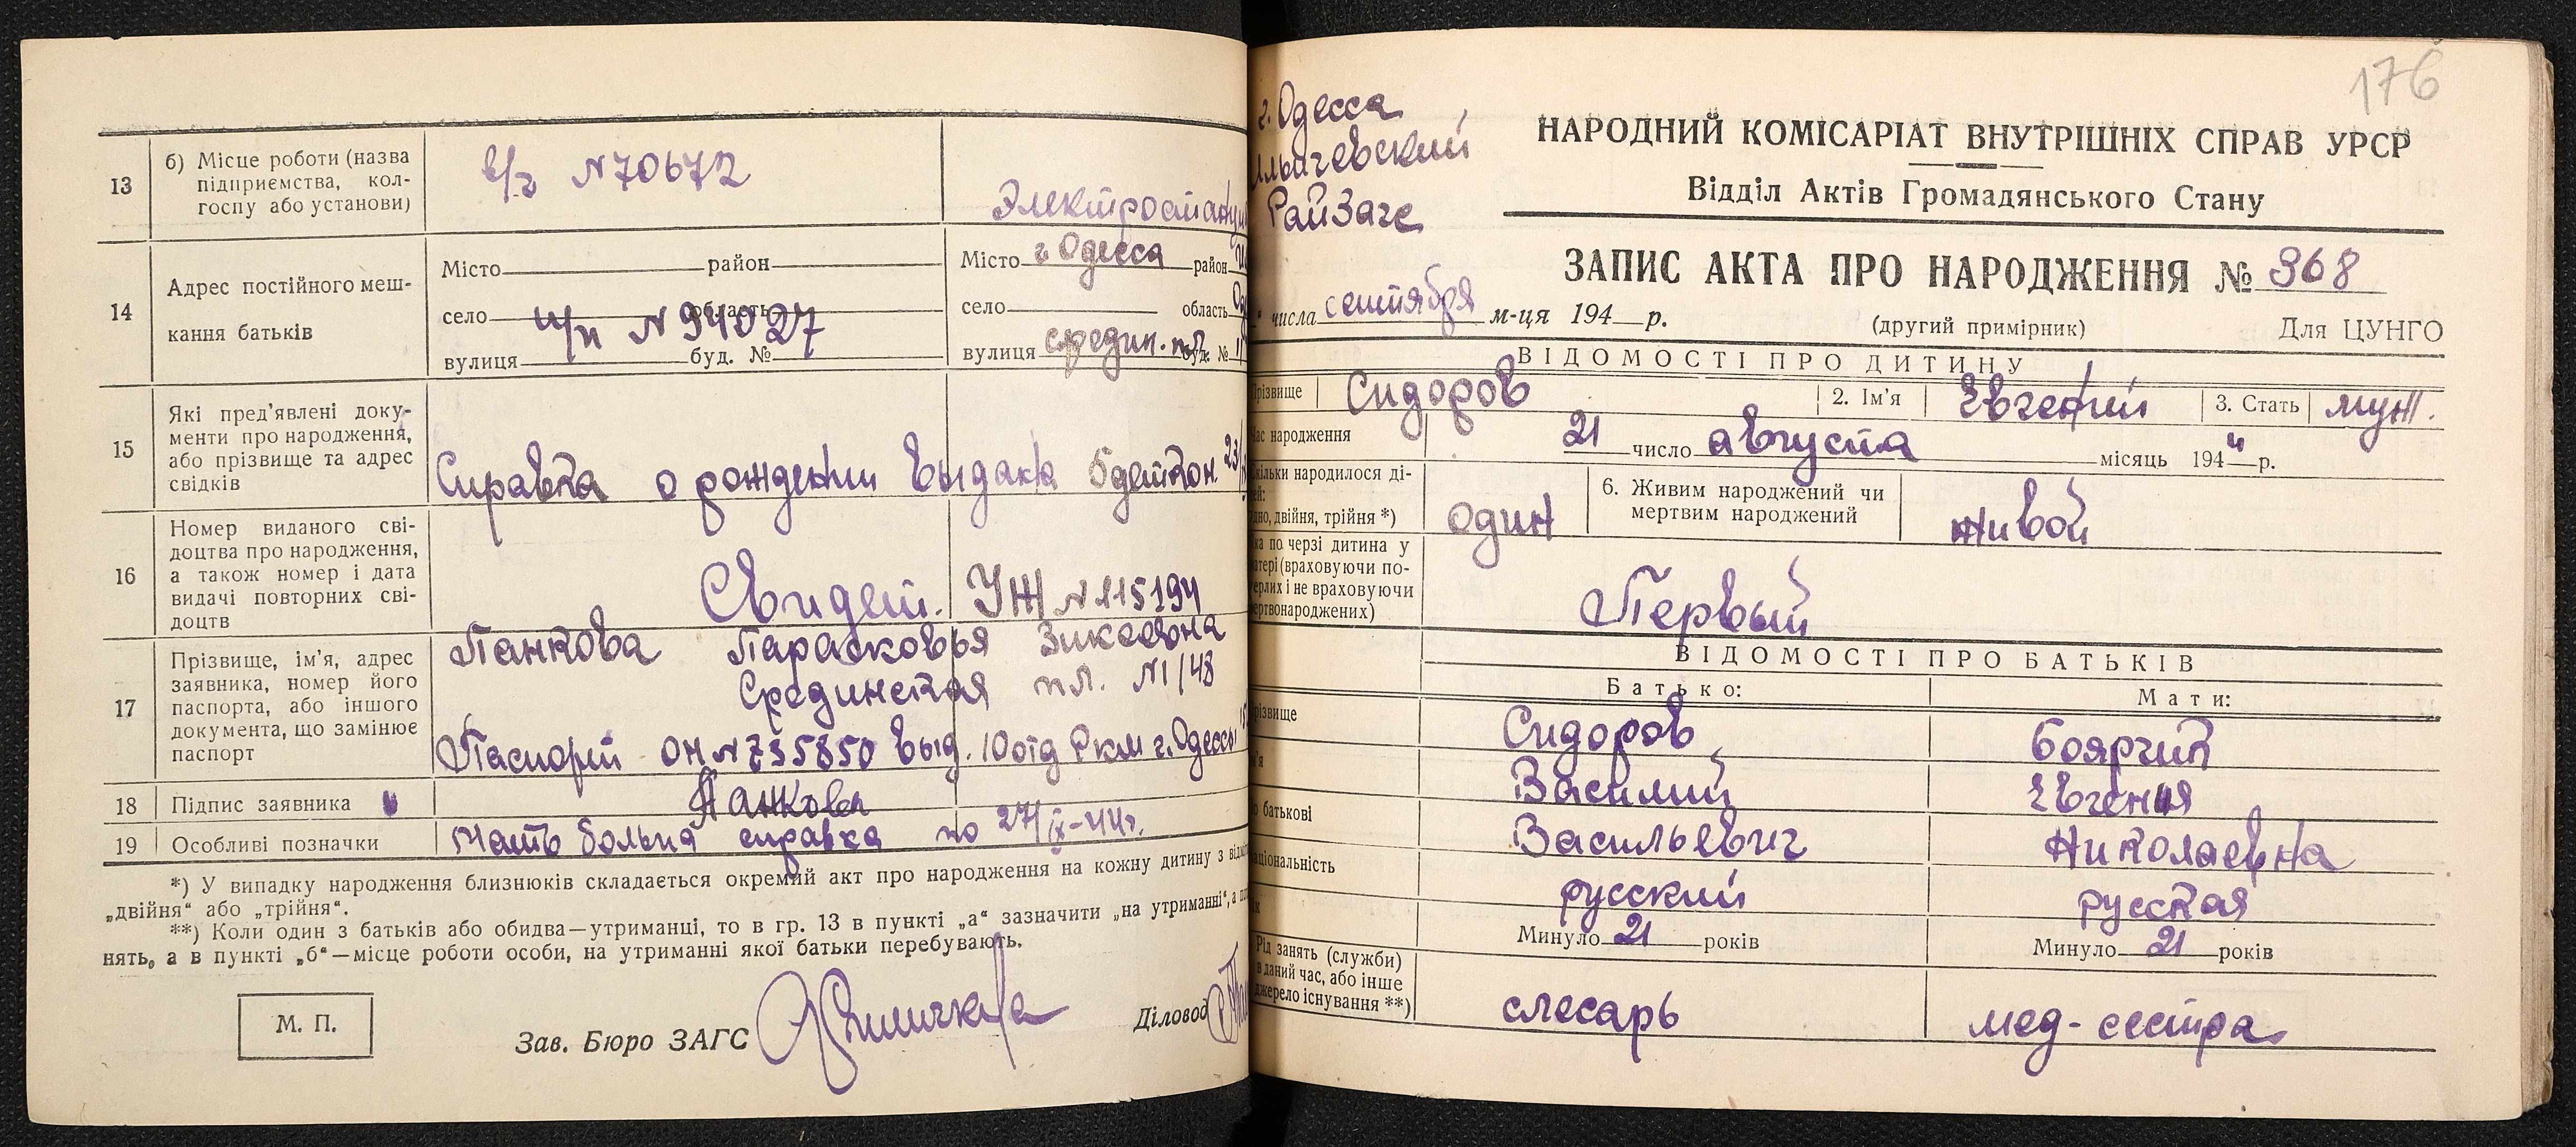 13
б) Місце роботи (назва
підприємства, кол-
госпу або установи)
в/ч №70672
14
Адрес постійного меш-
кання батьків
Місто район
село область
п/п № 94027
вулиця буд. №
Місто г Одесса район
село область
вулиця средин. пл. буд. №
15
Які пред'явлені доку-
менти про народження,
або прізвище та адрес
свідків
Справка о рождении выдана 5
16
Номер виданого сві-
доцтва про народження,
а також номер і дата
видачі повторних сві-
доцтв
Свидет. УЖ №115194
17
Прізвище, ім'я, адрес
заявника, номер його
паспорта, або іншого
документа, що замінює
паспорт
Панкова Парасковья
Срединская пл. №1/48
Паспорт ОН №735850 выд. 10 отд Ркм г. Одессы
18
Підпис заявника
Панкова
19
Особливі позначки
Мать больна справка по 27/IX-44г.
*) У випадку народження близнюків складається окремий акт про народження на кожну дитину з
„двійня“ або „трійня“.
**) Коли один з батьків або обидва—утриманці, то в гр. 13 в пункті „а“ зазначити „на утриманні“, а
нять, а в пункті „б“—місце роботи особи, на утриманні якої батьки перебувають.
М. П.
Зав. Бюро ЗАГС
Діловод
176
г. Одесса
Ильичевский
РайЗагс
НАРОДНИЙ КОМІСАРІАТ ВНУТРІШНІХ СПРАВ УРСР
Відділ Актів Громадянського Стану
ЗАПИС АКТА ПРО НАРОДЖЕННЯ № 368
числа сентября м-ця 194 р.
(другий примірник)
Для ЦУНГО
ВІДОМОСТІ ПРО ДИТИНУ
Сидоров
2. Ім'я Евгений
3. Стать муж.
народження
21 число августа місяць 1944 р.
народилося ді-
двійня, трійня *)
один
6. Живим народжений чи
мертвим народжений
живой
по черзі дитина у
(враховуючи по-
і не враховуючи
Первый
ВІДОМОСТІ ПРО БАТЬКІВ
Батько: Мати:
Сидоров Боярчик
Василий Евгения
батькові Васильевич Николаевна
русский русская
Минуло 21 років Минуло 21 років
Рід занять (служби)
в даний час, або інше
джерело існування **)
слесарь мед-сестра